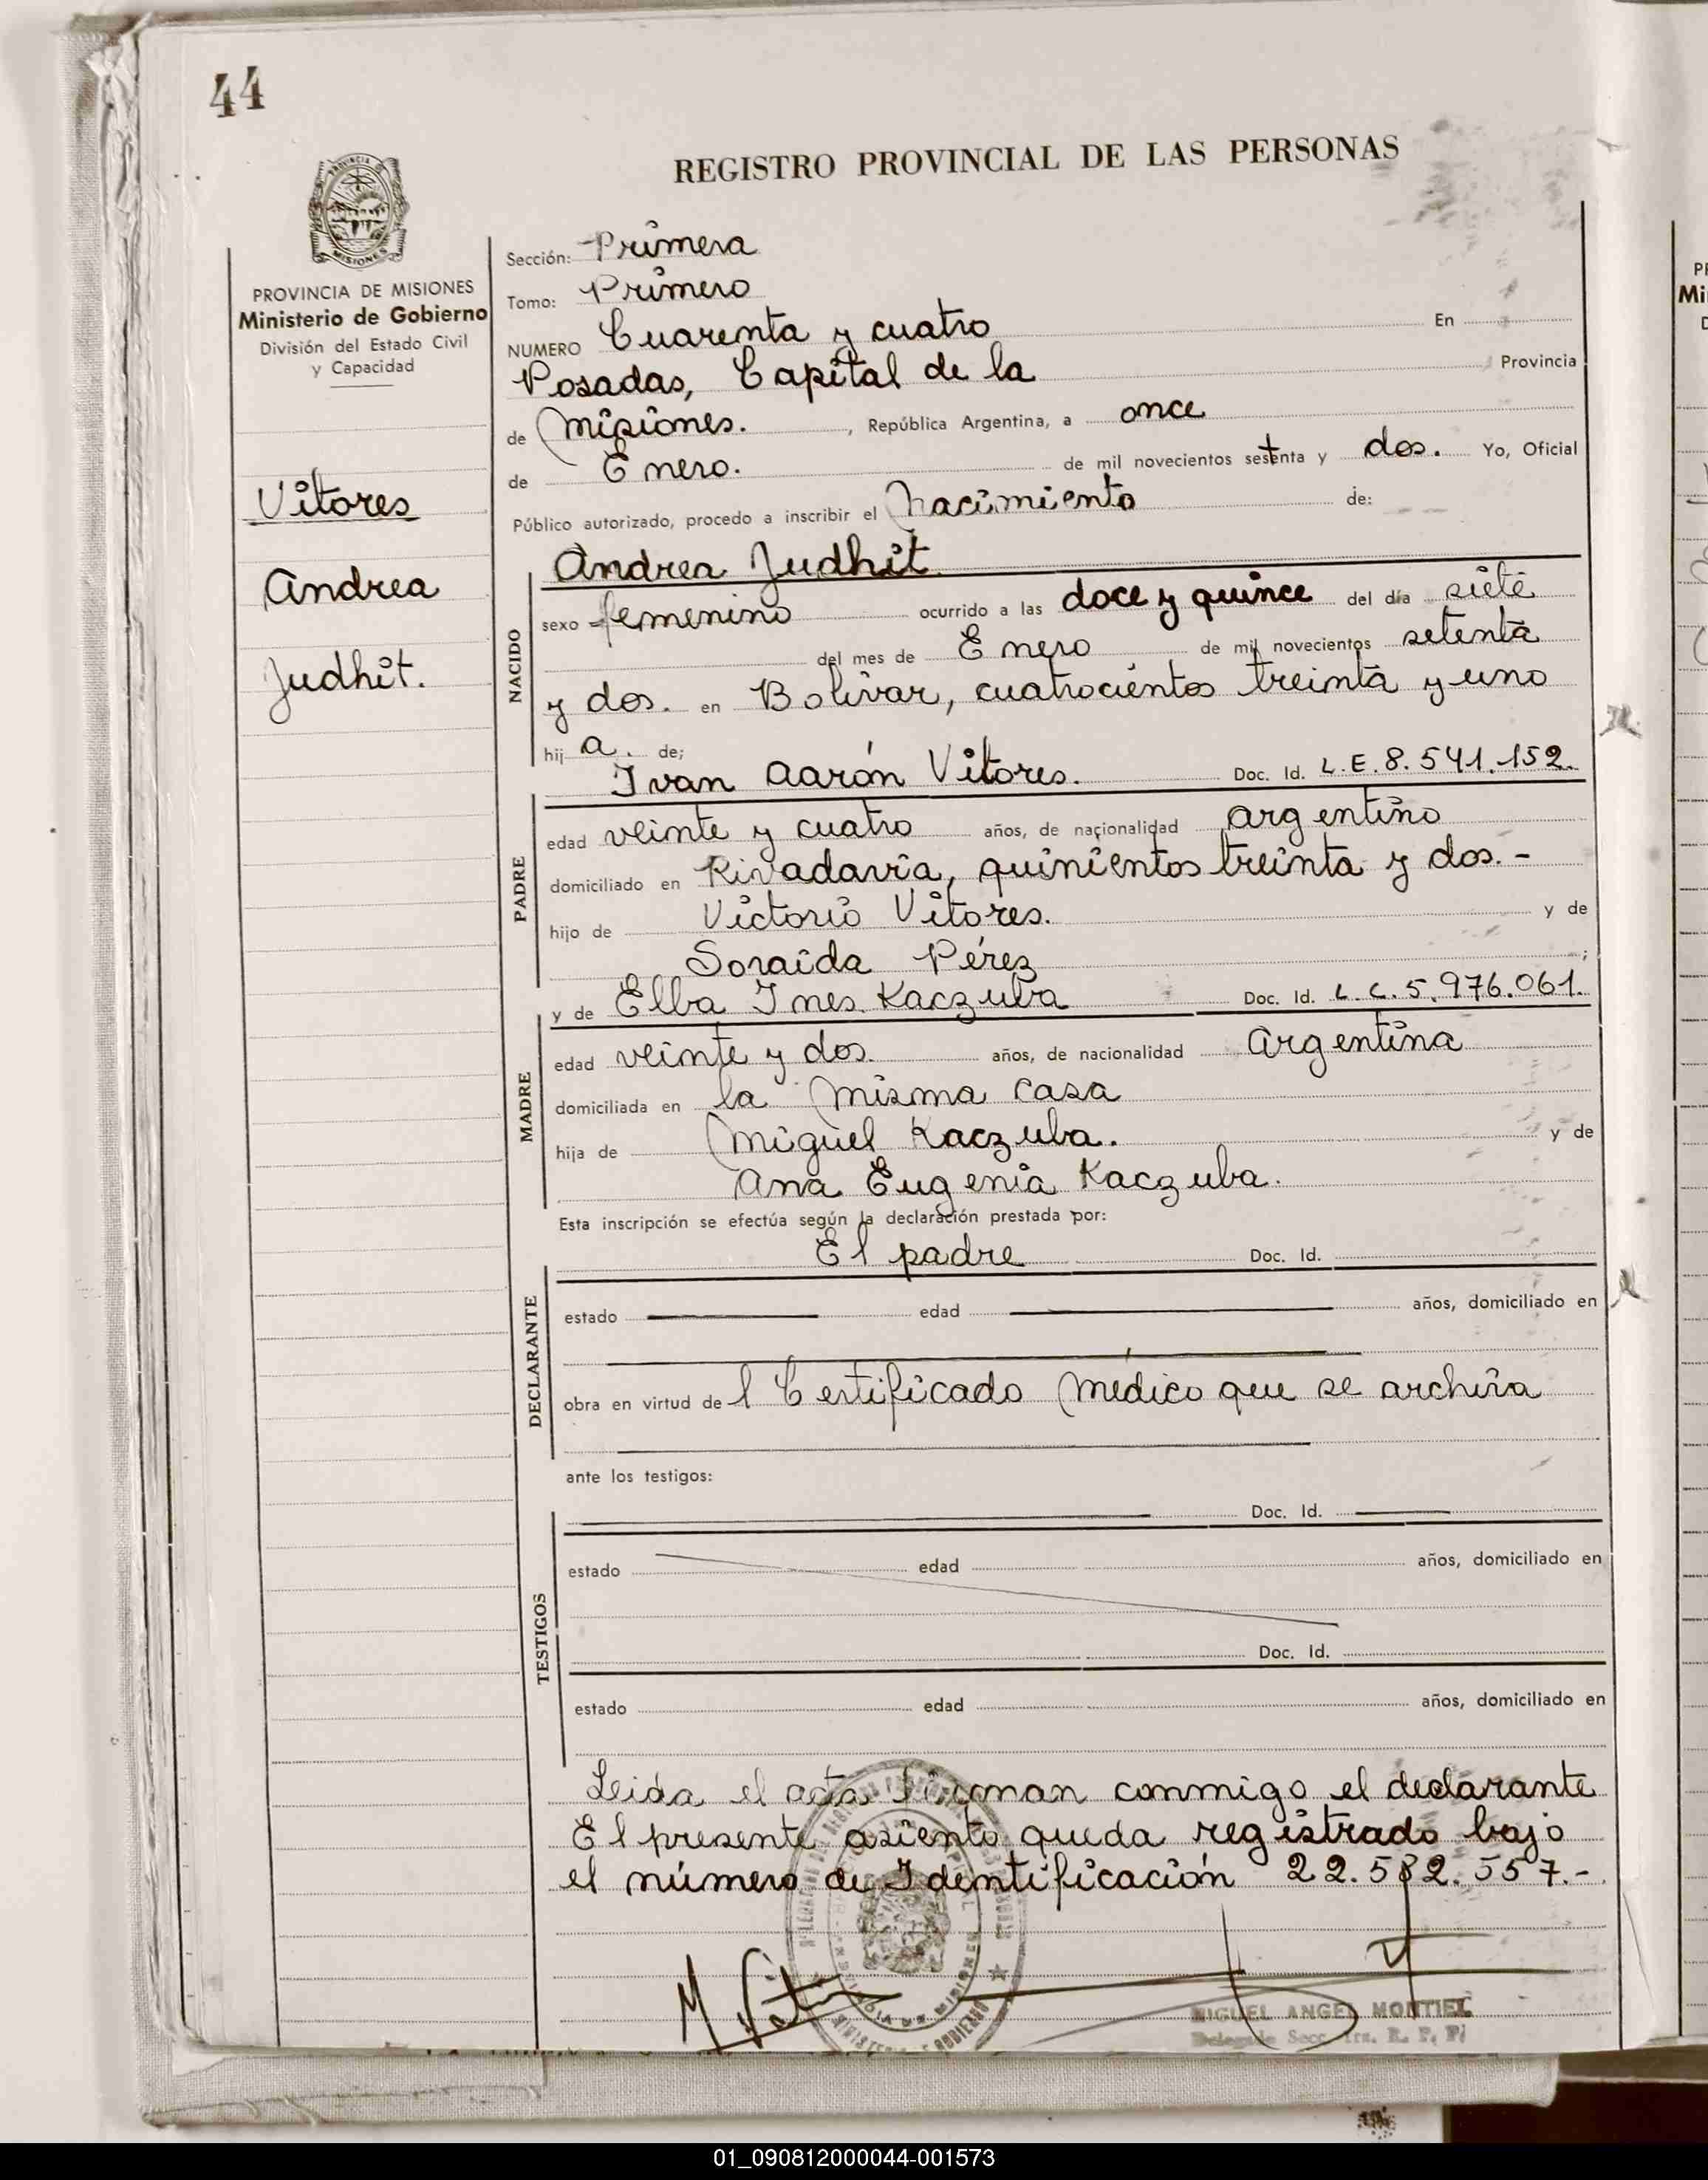 44
REGISTRO PROVINCIAL DE LAS PERSONAS
PROVINCIA DE MISIONES
Ministerio de Gobierno
División del Estado Civil
y Capacidad
Vitores
Andrea
Judhit.
Sección: Primera
Tomo: Primero
NUMERO Cuarenta y cuatro En
Posadas, Capital de la Provincia
de Misiones. , República Argentina, a once
de Enero. de mil novecientos setenta y dos. Yo, Oficial
Público autorizado, procedo a inscribir el Nacimiento de:
Andrea Judhit
NACIDO
sexo femenino ocurrido a las doce y quince del día siete
del mes de Enero de mil novecientos setenta
y dos. en Bolivar, cuatrocientos treinta y uno
hij a. de;
Ivan Aarón Vitores. Doc. Id. L.E. 8.541.152.
PADRE
edad veinte y cuatro años, de nacionalidad argentino
domiciliado en Rivadavia, quinientos treinta y dos.-
hijo de Victorio Vitores. y de
Soraida Pérez ;
y de Elba Ines Kaczuba Doc. Id. L.C. 5.976.061.
MADRE
edad veinte y dos. años, de nacionalidad argentina
domiciliada en la misma casa
hija de Miguel Kaczuba. y de
Ana Eugenia Kaczuba.
Esta inscripción se efectúa según la declaración prestada por:
El padre Doc. Id.
DECLARANTE
estado edad años, domiciliado en
obra en virtud del Certificado Médico que se archiva
ante los testigos:
Doc. Id.
TESTIGOS
estado edad años, domiciliado en
Doc. Id.
estado edad años, domiciliado en
Leida el acta firman conmigo el declarante
El presente asiento queda registrado bajo
el número de Identificación 22.582.557.-
MIGUEL ANGEL MONTIEL
01_090812000044-001573